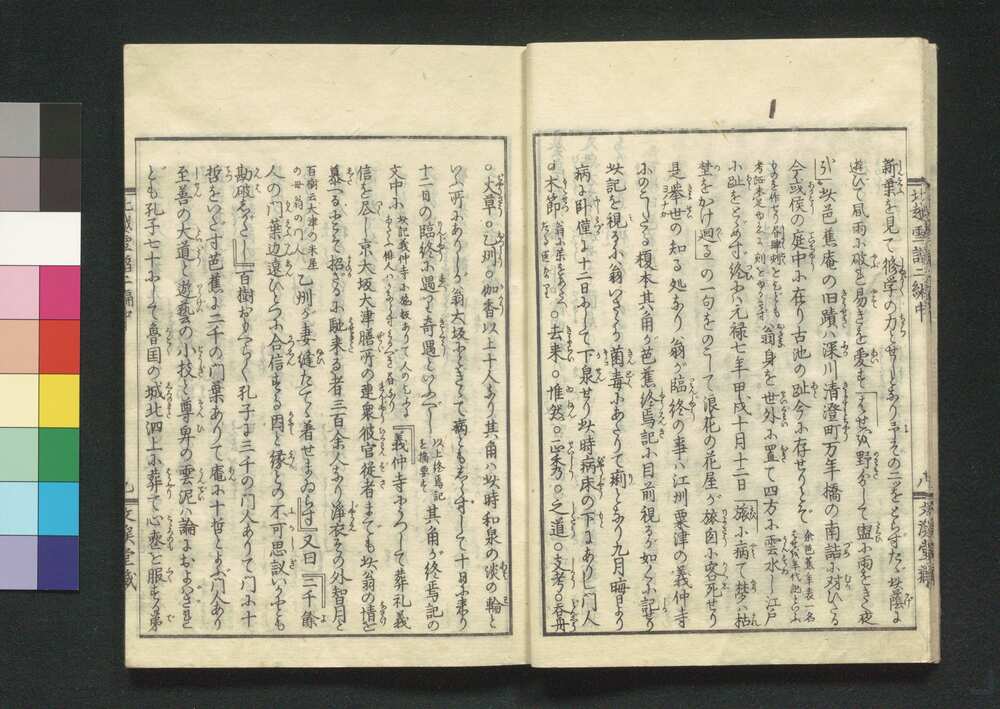 新葉を見て修学の力とせしとありまその二ツをとらずたゞ此蔭に
遊びて風雨に破れ易きを愛す はせを野分して盥に雨をきく夜
哉 此芭蕉庵の旧蹟ハ深川清澄町万年橋の南詰に対ひたる
今或侯の庭中に在り古池の趾今に存せりとぞ
翁身を世外に置て四方に雲水し江戸
に趾をとゞめず終に元禄七年甲戌十月十二日 旅に病て夢ハ枯
埜をかけ廻る の一句をのこして浪花の花屋が旅囱に客死せり
是挙世の知る処なり 翁が臨終の事ハ江州粟津の義仲寺
にのこしたる榎本其角が芭蕉終焉記に目前視るが如くに記せり
此記を視るに翁いさゝか菌毒にあたりて痢となり九月晦日より
病に臥僅に十二日にして下泉せり此時病床の下にありし門人
○木節 ○去来○惟然○正秀○之道○支考○呑舟
○丈草○乙州○伽香以上十人なり其角ハ此時和泉の淡の輪と
いふ所にありしが翁大坂にときゝて病ともしらずして十日に来り
十二日の臨終に遇へり奇遇といふべし 以上終焉記を摘要す 其角が終焉記の
文中に 義仲寺にうつして葬礼義
信を尽し京大坂大津膳所の連衆被官従者までも此翁の情を
慕へるにこそ招ざるに馳来る者三百余人なり浄衣その外智月と
百樹云大津の米屋の母翁の門人 乙州が妻縫たてゝ着せまゐらす 又曰 二千余
人の門葉辺遠ひとつに合信する因と縁との不可思議いかにとも
勘破しがたし 百樹おもへらく孔子に三千の門人ありて門に十
哲をいだす芭蕉に二千の門葉ありて庵に十哲とよぶ門人あり
至善の大道と遊藝の小技と尊卑の雲泥ハ論におよばざれ
ども孔子七十にして魯国の城北泗上に葬て心喪を服する弟